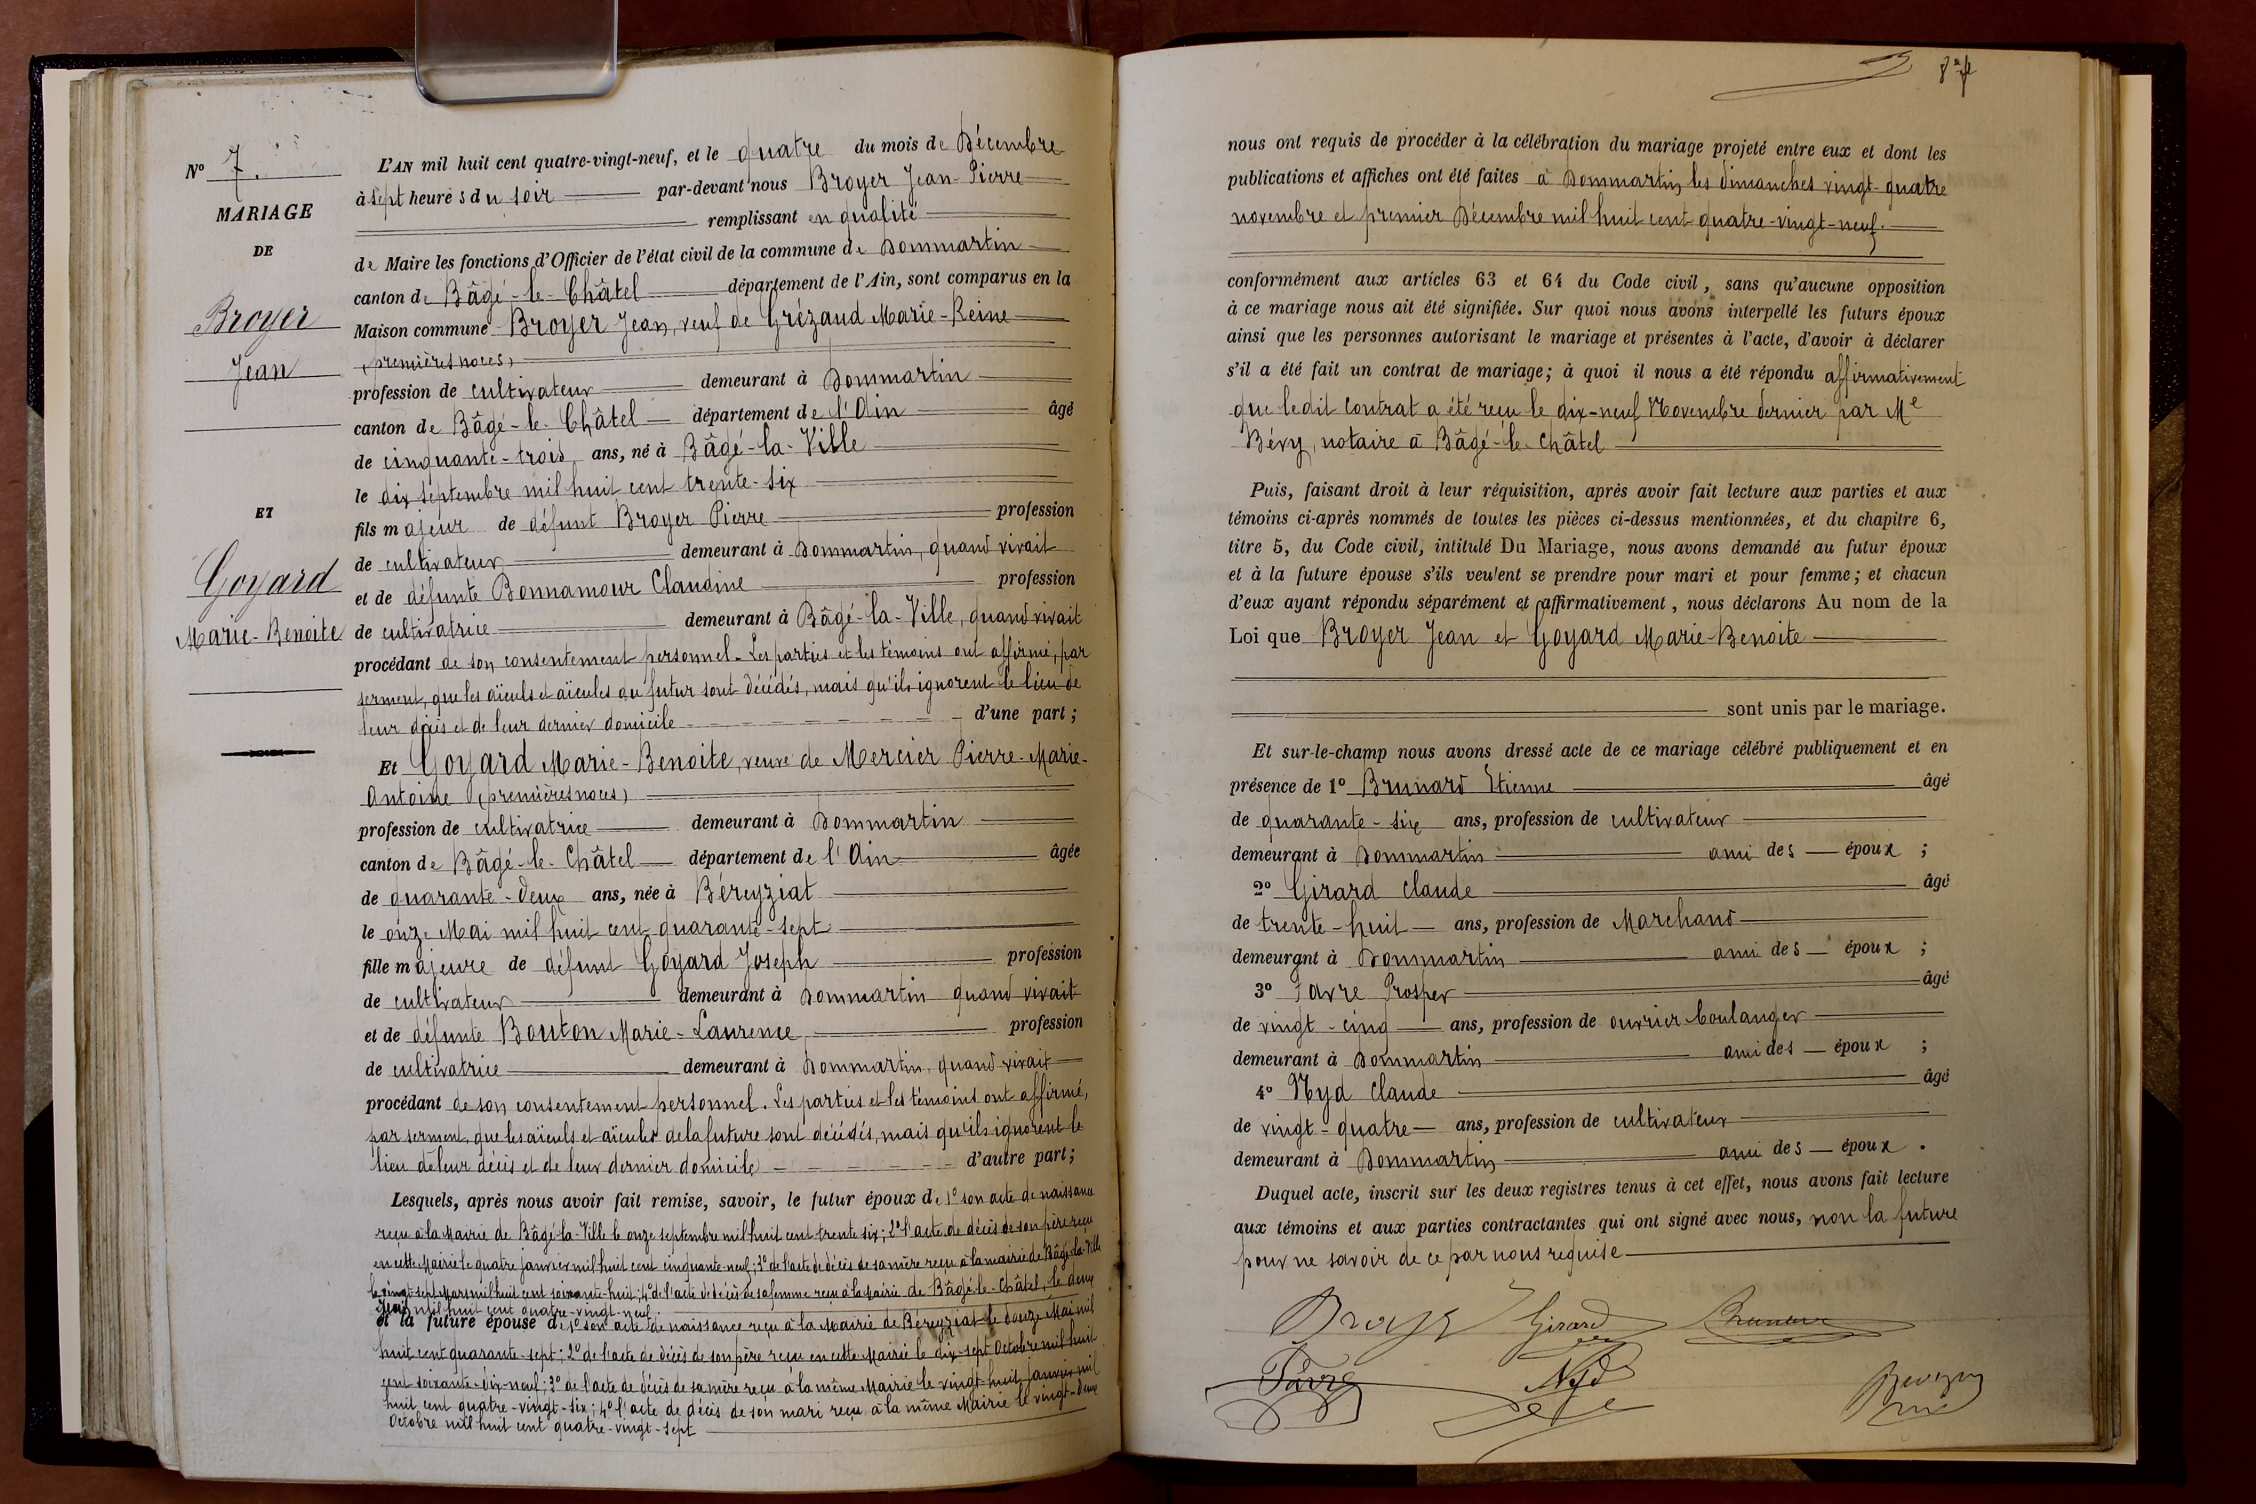 N° 7.
MARIAGE
DE
Broyer
Jean
ET
Goyard
Marie-Benoite
L'AN mil huit cent quatre-vingt-neuf, et le quatre du mois de Décembre
à sept heures du soir par-devant nous Broyer Jean-Pierre
remplissant en qualité
de Maire les fonctions d'Officier de l'état civil de la commune de Dommartin
canton de Bâgé-le-Châtel département de l'Ain, sont comparus en la
Maison commune Broyer Jean, veuf de Grézaud Marie-Reine
(premières noces)
profession de cultivateur demeurant à Dommartin
canton de Bâgé-le-Châtel département de l'Ain âgé
de cinquante-trois ans, né à Bâgé-la-Ville
le dix septembre mil huit cent trente-six
fils majeur de défunt Broyer Pierre profession
de cultivateur demeurant à Dommartin, quand vivait
et de défunte Bonnamour Claudine profession
de cultivatrice demeurant à Bâgé-la-Ville, quand vivait
procédant de son consentement personnel. Les parties et les témoins ont affirmé, par
serment, que les aïeuls et aïeules du futur sont décédés, mais qu'ils ignorent le lieu de
leur décès et de leur dernier domicile d'une part;
Et Goyard Marie-Benoite, veuve de Mercier Pierre-Marie-
Antoine (premières noces)
profession de cultivatrice demeurant à Dommartin
canton de Bâgé-le-Châtel département de l'Ain âgée
de quarante-deux ans, née à Béreyziat
le onze Mai mil huit cent quarante-sept
fille majeure de défunt Goyard Joseph profession
de cultivateur demeurant à Dommartin quand vivait
et de défunte Bouton Marie-Laurence profession
de cultivatrice demeurant à Dommartin, quand vivait
procédant de son consentement personnel. Les parties et les témoins ont affirmé,
par serment, que les aïeuls et aïeules de la future sont décédés, mais qu'ils ignorent le
lieu de leur décès et de leur dernier domicile d'autre part;
Lesquels, après nous avoir fait remise, savoir, le futur époux de 1° son acte de naissance
reçu à la Mairie de Bâgé-la-Ville le onze septembre mil huit cent trente six; 2° l'acte de décès de son père reçu
en cette Mairie le quatre janvier mil huit cent cinquante-neuf; 3° de l'acte de décès de sa mère reçu à la mairie de Bâgé-la-Ville
le vingt-sept Mars mil huit cent soixante-huit; 4° de l'acte de décès de sa femme reçu à la Mairie de Bâgé-le-Châtel, le deux
mil huit cent quatre-vingt-neuf.
et la future épouse de 1° son acte de naissance reçu à la Mairie de Béreyziat le douze Mai mil
huit cent quarante-sept; 2° de l'acte de décès de son père reçu en cette Mairie le dix-sept Octobre mil huit
cent soixante-dix-neuf; 3° de l'acte de décès de sa mère reçu à la même Mairie le vingt-huit janvier mil
huit cent quatre-vingt-six; 4° l'acte de décès de son mari reçu à la même Mairie le vingt-deux
Octobre mil huit cent quatre-vingt-sept
nous ont requis de procéder à la célébration du mariage projeté entre eux et dont les
publications et affiches ont été faites à Dommartin les dimanches vingt-quatre
novembre et premier Décembre mil huit cent quatre-vingt-neuf.
conformément aux articles 63 et 64 du Code civil, sans qu'aucune opposition
à ce mariage nous ait été signifiée. Sur quoi nous avons interpellé les futurs époux
ainsi que les personnes autorisant le mariage et présentes à l'acte, d'avoir à déclarer
s'il a été fait un contrat de mariage; à quoi il nous a été répondu affirmativement
que ledit Contrat a été reçu le dix-neuf Novembre dernier par Me
Béry, notaire à Bâgé-le-Châtel
Puis, faisant droit à leur réquisition, après avoir fait lecture aux parties et aux
témoins ci-après nommés de toutes les pièces ci-dessus mentionnées, et du chapitre 6,
titre 5, du Code civil, intitulé Du Mariage, nous avons demandé au futur époux
et à la future épouse s'ils veulent se prendre pour mari et pour femme; et chacun
d'eux ayant répondu séparément et affirmativement, nous déclarons Au nom de la
Loi que Broyer Jean et Goyard Marie-Benoite
sont unis par le mariage.
Et sur-le-champ nous avons dressé acte de ce mariage célébré publiquement et en
présence de 1° Brunard Etienne âgé
de quarante-six ans, profession de cultivateur
demeurant à Dommartin ami des époux;
2° Girard Claude âgé
de trente-huit ans, profession de Marchand
demeurant à Dommartin ami des époux;
3° Favre Prosper âgé
de vingt-cinq ans, profession de ouvrier boulanger
demeurant à Dommartin ami des époux;
4° Nyd Claude âgé
de vingt-quatre ans, profession de cultivateur
demeurant à Dommartin ami des époux.
Duquel acte, inscrit sur les deux registres tenus à cet effet, nous avons fait lecture
aux témoins et aux parties contractantes qui ont signé avec nous, non la future
pour ne savoir de ce par nous requise
Broyer Girard Brunard
Favre Nyd